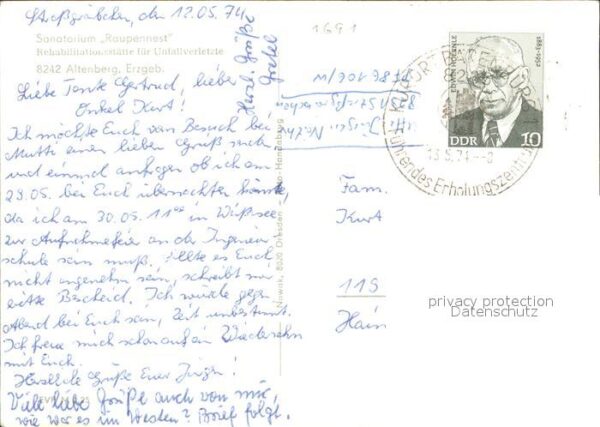 Großgräbchen, den 12.05.74
Sanatorium „Raupennest"
Rehabilitationsstätte für Unfallverletzte
8242 Altenberg, Erzgeb.
Liebe Tante Gertrud, lieber
Onkel Kurt!
Ich möchte Euch vom Besuch bei
Mutti einen lieben Gruß
und einmal anfragen ob ich am
29.05. bei Euch übernachten könnte,
da ich am 30.05. 11⁰⁰ in
zur Aufnahmefeier an der Ingenieur
schule sein muß. Sollte es Euch
nicht angenehm sein, schreibt mir
bitte Bescheid. Ich würde gegen
Abend bei Euch sein, Zeit unbestimmt.
Ich freue mich schon auf ein Wiedersehn
mit Euch.
Herzliche Grüße Euer Jürgen!
Viele liebe Grüße auch von mir,
wie war es im Westen? Brief folgt.
Herzl. Grüße
1691
Nowak, 8020 Dresden
Fam.
Kurt
115
Hain
EDWIN HOERNLE
1883-1952
DDR 10
13.5.74
führendes Erholungszentrum
privacy protection
Datenschutz